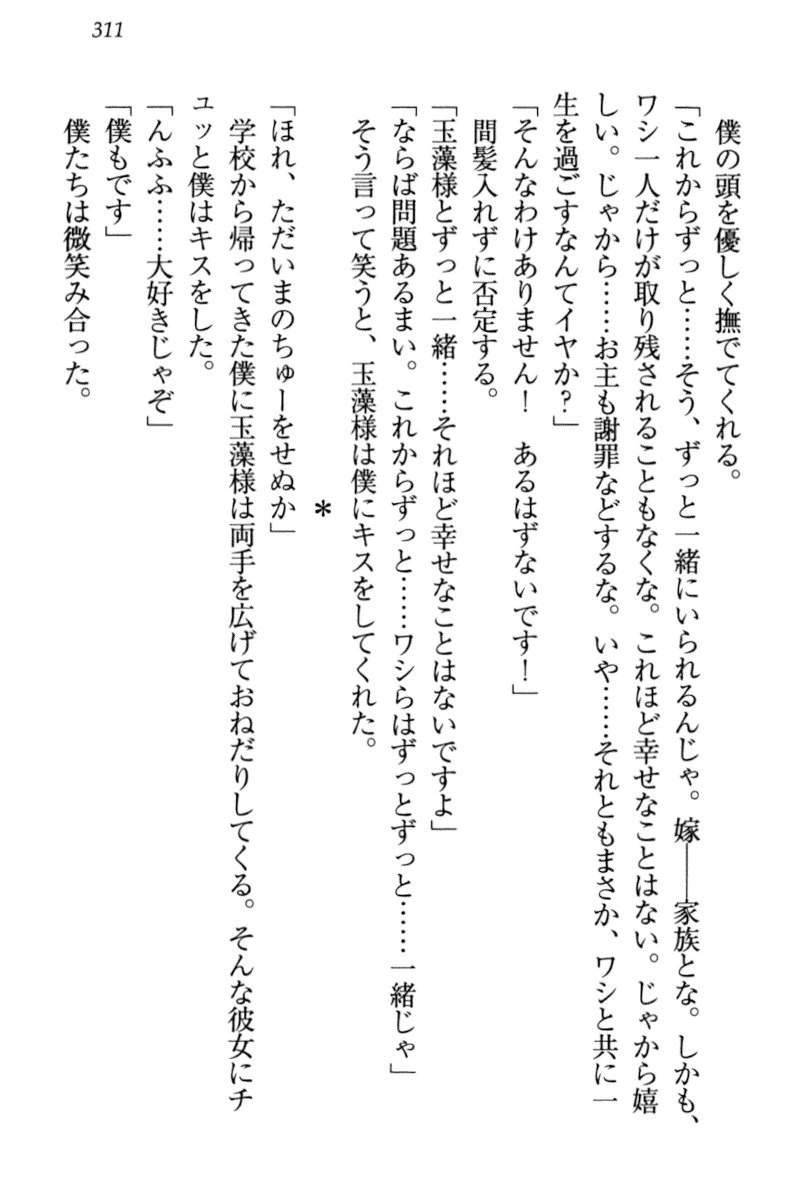 311
僕の頭を優しく撫でてくれる。
「これからずっと……そう、ずっと一緒にいられるんじゃ。嫁――家族とな。しかも、
ワシ一人だけが取り残されることもなくな。これほど幸せなことはない。じゃから嬉
しい。じゃから……お主も謝罪などするな。いや……それともまさか、ワシと共に一
生を過ごすなんてイヤか？」
「そんなわけありません！　あるはずないです！」
間髪入れずに否定する。
「玉藻様とずっと一緒……それほど幸せなことはないですよ」
「ならば問題あるまい。これからずっと……ワシらはずっとずっと……一緒じゃ」
そう言って笑うと、玉藻様は僕にキスをしてくれた。
＊
「ほれ、ただいまのちゅーをせぬか」
学校から帰ってきた僕に玉藻様は両手を広げておねだりしてくる。そんな彼女にチ
ュッと僕はキスをした。
「んふふ……大好きじゃぞ」
「僕もです」
僕たちは微笑み合った。